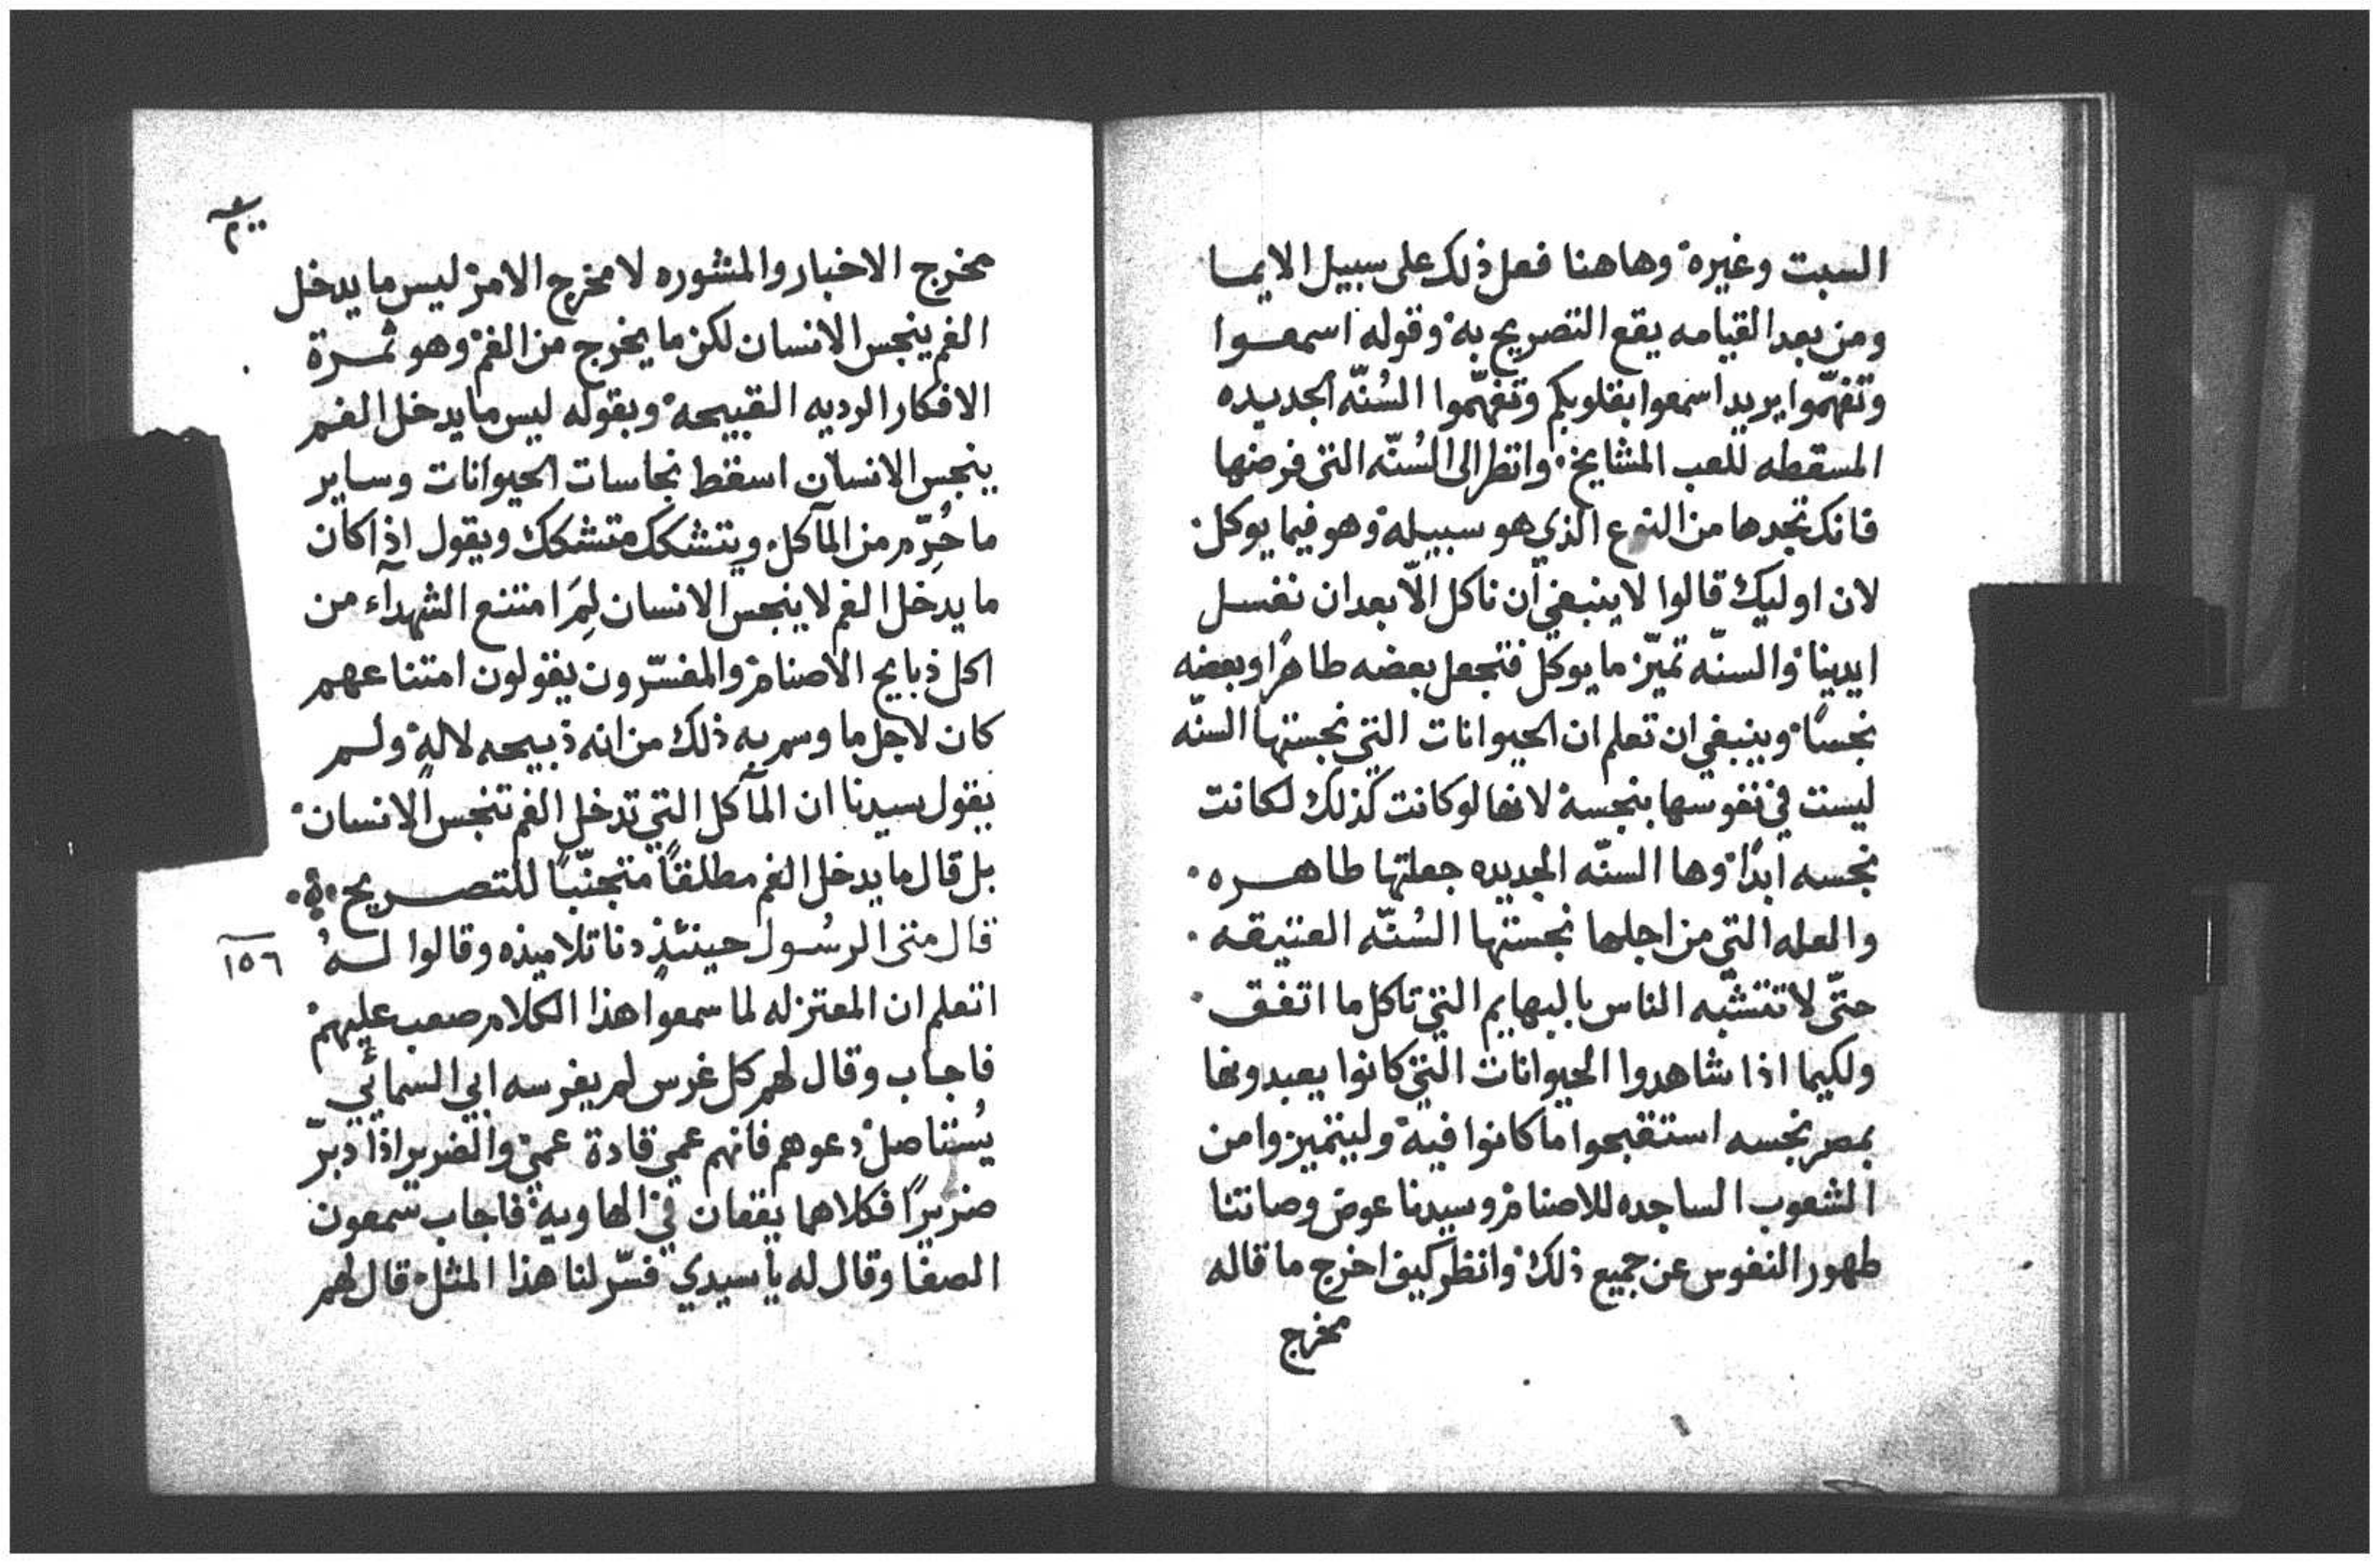 السبت وغيره وهاهنا فعل ذلك على سبيل الايما
ومن بعد القيامه يقع التصريح به وقوله اسمعوا
وتفهّموا يريد اسمعوا بقلوبكم وتفهّموا السُنّه الجديده
المسقطه للعب المشايخ وانظر الى السُنّه التي فرضها
فانك تجدها من النوع الذي هو سبيله وهو فيما يوكل
لان اوليك قالوا لا ينبغي ان ناكل الّا بعد ان نغسل
ايدينا والسنّه تميّز ما يوكل فتجعل بعضه طاهرًا وبعضه
نجسًا وينبغي ان تعلم ان الحيوانات التي نجستها السنّه
ليست في نفوسها بنجسة لانها لو كانت كذلك لكانت
نجسه ابدًا وها السنّه الجديده جعلتها طاهره
والعله التي من اجلها نجستها السُنّه العتيقه
حتّى لا تتشبّه الناس بالبهايم التي تاكل ما اتفق
ولكيما اذا شاهدوا الحيوانات التي كانوا يعبدونها
بمصر نجسه استقبحوا ما كانوا فيه وليتميزوا من
الشعوب الساجده للاصنام وسيدنا عوض وصاتنا
طهور النفوس عن جميع ذلك وانظر كيف اخرج ما قاله
مخرج
مخرج الاخبار والمشوره لا مخرج الامر ليس ما يدخل
الفم ينجس الانسان لكن ما يخرج من الفم وهو ثمرة
الافكار الرديه القبيحه وبقوله ليس ما يدخل الفم
ينجس الانسان اسقط نجاسات الحيوانات وساير
ما حُرِّم من المآكل ويتشكك متشكك ويقول اذا كان
ما يدخل الفم لا ينجس الانسان لِمَ امتنع الشهدآء من
اكل ذبايح الاصنام والمفسّرون يقولون امتناعهم
كان لاجل ما وسم به ذلك من انه ذبيحه لالهٍ ولم
يقول سيدنا ان المآكل التي تدخل الفم تنجس الانسان
بل قال ما يدخل الفم مطلقًا متجنّبًا للتصريح
قال متى الرسُول حينئذٍ دنا تلاميذه وقالوا لهُ
١٥٦
اتعلم ان المعتزله لما سمعوا هذا الكلام صعب عليهم
فاجاب وقال لهم كل غرس لم يغرسه ابي السمائي
يُستاصل دعوهم فانهم عمي قادة عمي والضرير اذا دبرّ
ضريرًا فكلاهما يقعان في الهاويه فاجاب شمعون
الصفا وقال له يا سيدي فسّر لنا هذا المثل قال لهم